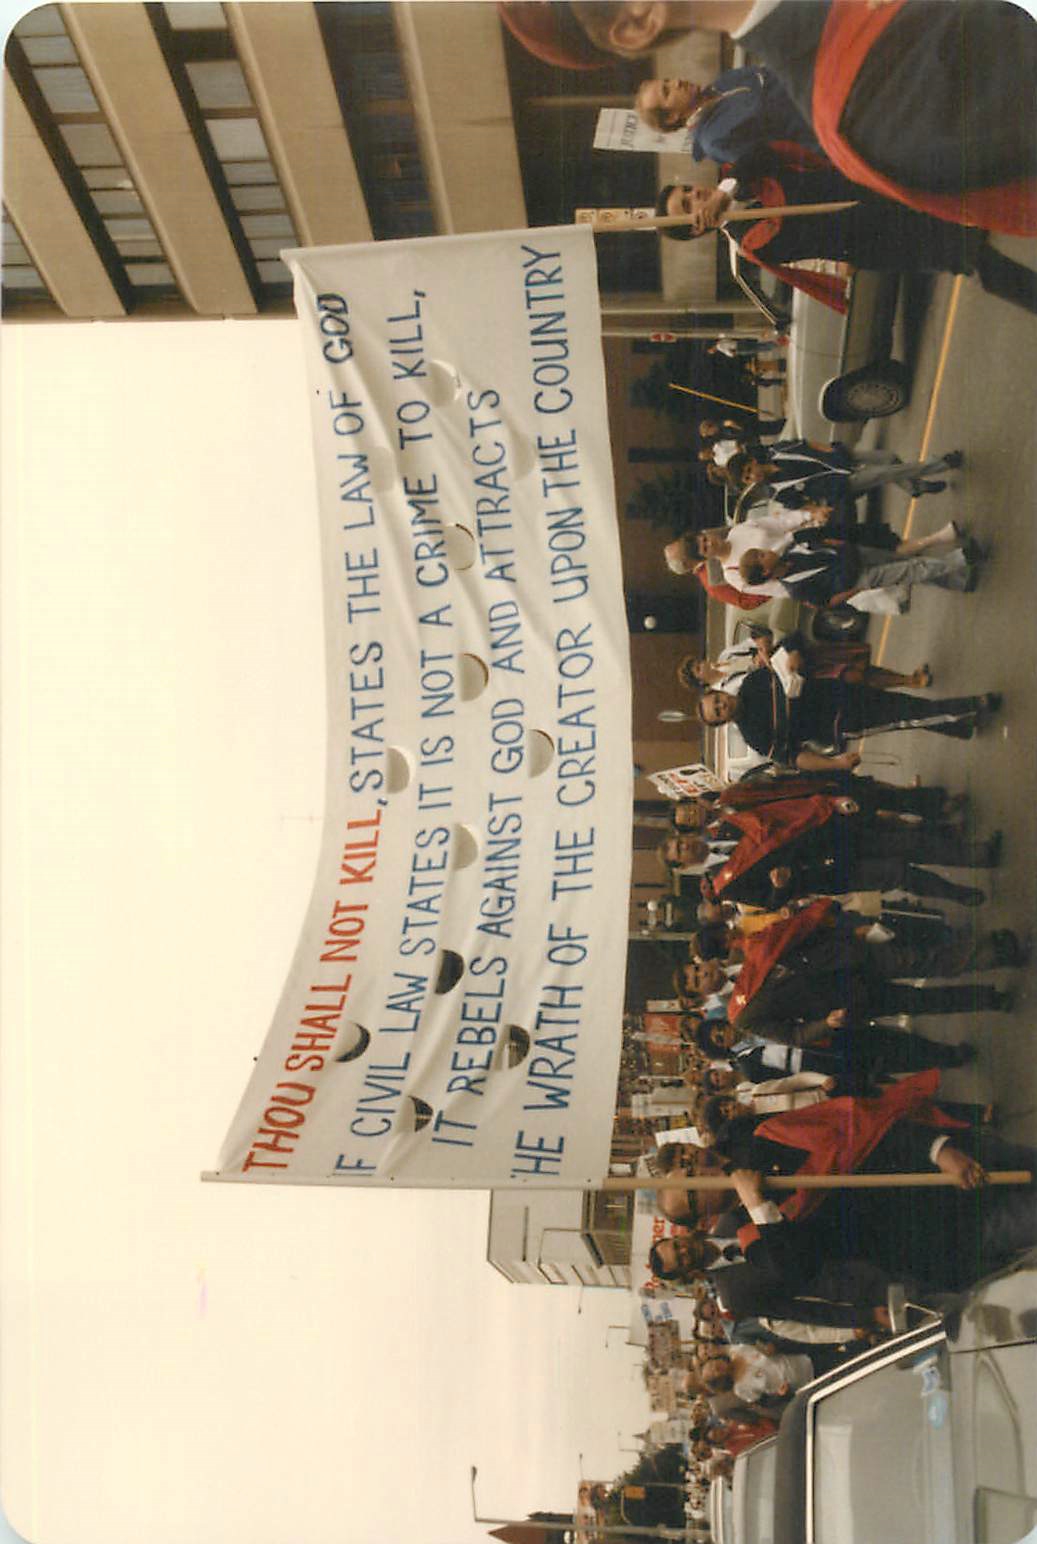 THOU SHALL NOT KILL, STATES THE LAW OF GOD
IF CIVIL LAW STATES IT IS NOT A CRIME TO KILL,
IT REBELS AGAINST GOD AND ATTRACTS
THE WRATH OF THE CREATOR UPON THE COUNTRY
JUSTICE